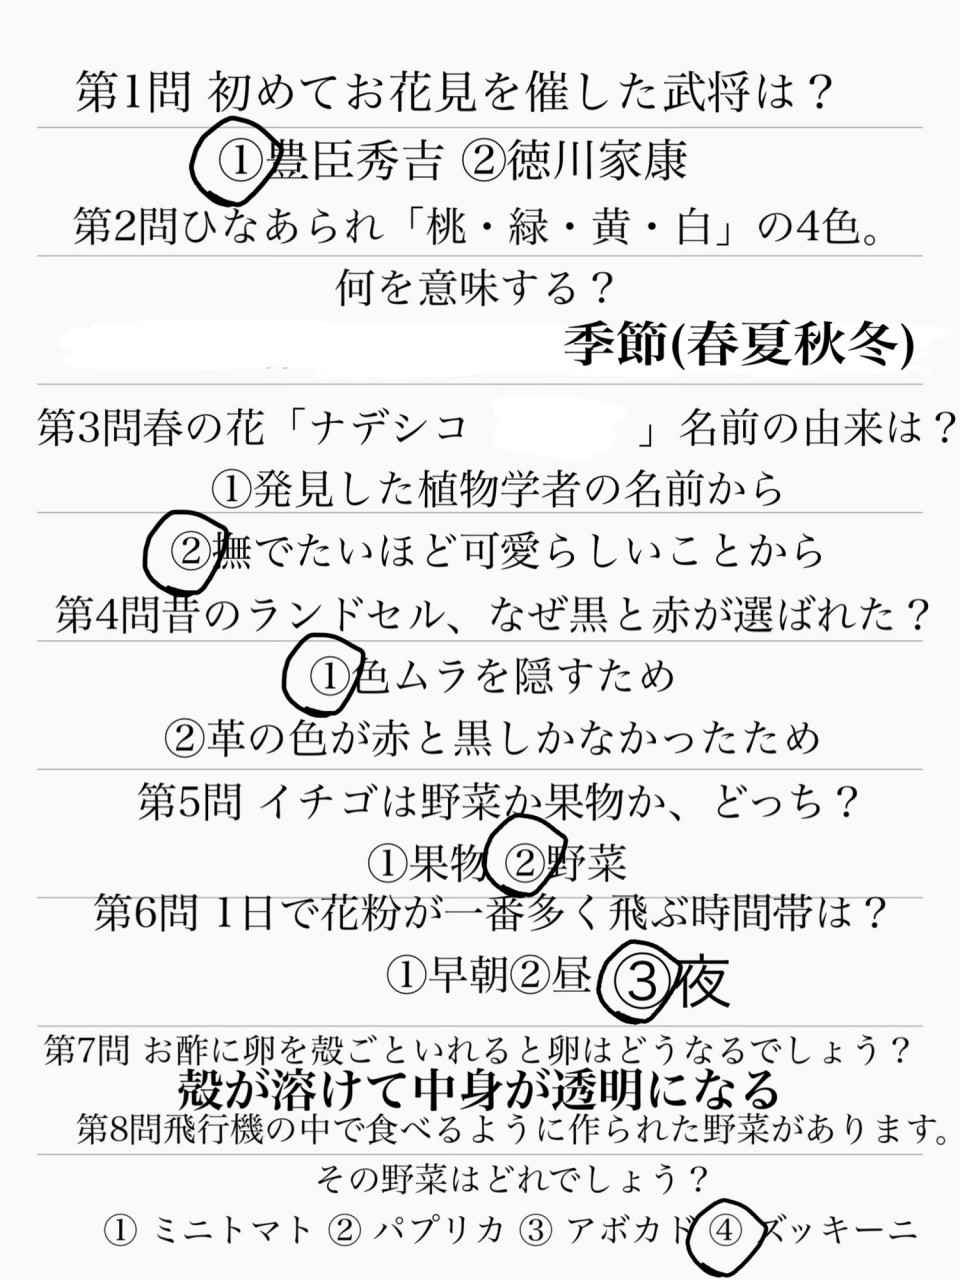 第1問 初めてお花見を催した武将は？
①豊臣秀吉 ②徳川家康
第2問ひなあられ「桃・緑・黄・白」の4色。
何を意味する？
季節(春夏秋冬)
第3問春の花「ナデシコ 」名前の由来は？
①発見した植物学者の名前から
②撫でたいほど可愛らしいことから
第4問昔のランドセル、なぜ黒と赤が選ばれた？
①色ムラを隠すため
②革の色が赤と黒しかなかったため
第5問 イチゴは野菜か果物か、どっち？
①果物 ②野菜
第6問 1日で花粉が一番多く飛ぶ時間帯は？
①早朝②昼 ③夜
第7問 お酢に卵を殻ごといれると卵はどうなるでしょう？
殻が溶けて中身が透明になる
第8問飛行機の中で食べるように作られた野菜があります。
その野菜はどれでしょう？
① ミニトマト ② パプリカ ③ アボカド ④ ズッキーニ